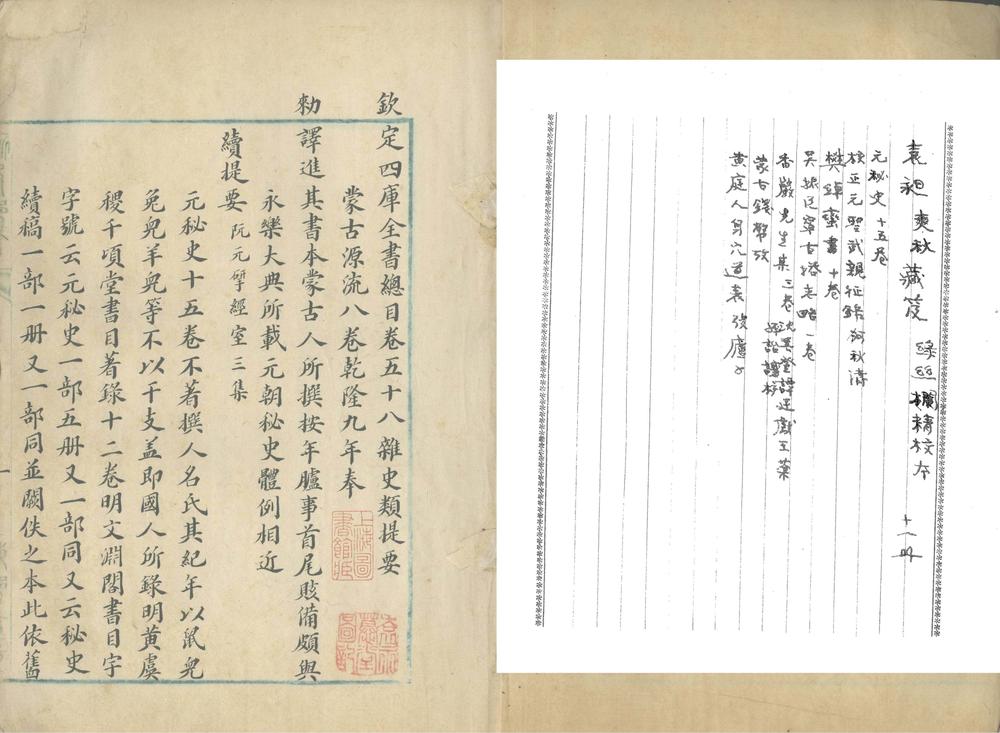 袁昶爽秋藏笈 綠絲欄精校本 十一冊
元秘史十五卷
校正元聖武親征錄 何秋濤
樊綽蠻書十卷
吳振臣寧古塔志略一卷
香嚴先生集三卷
蒙古錢幣攷
黃庭人身穴道表
欽定四庫全書總目卷五十八雜史類提要
蒙古源流八卷乾隆九年奉
勅譯進其書本蒙古人所撰按年臚事首尾賅備頗與
永樂大典所載元朝秘史體例相近
續提要 阮元揅經室三集
元秘史十五卷不著撰人名氏其紀年以鼠兒
兔兒羊兒等不以干支盖即國人所錄明黃虞
稷千頃堂書目著錄十二卷明文淵閣書目字
字號云元秘史一部五册又一部同又云秘史
續稿一部一册又一部同並闕佚之本此依舊
一
上海圖書館藏